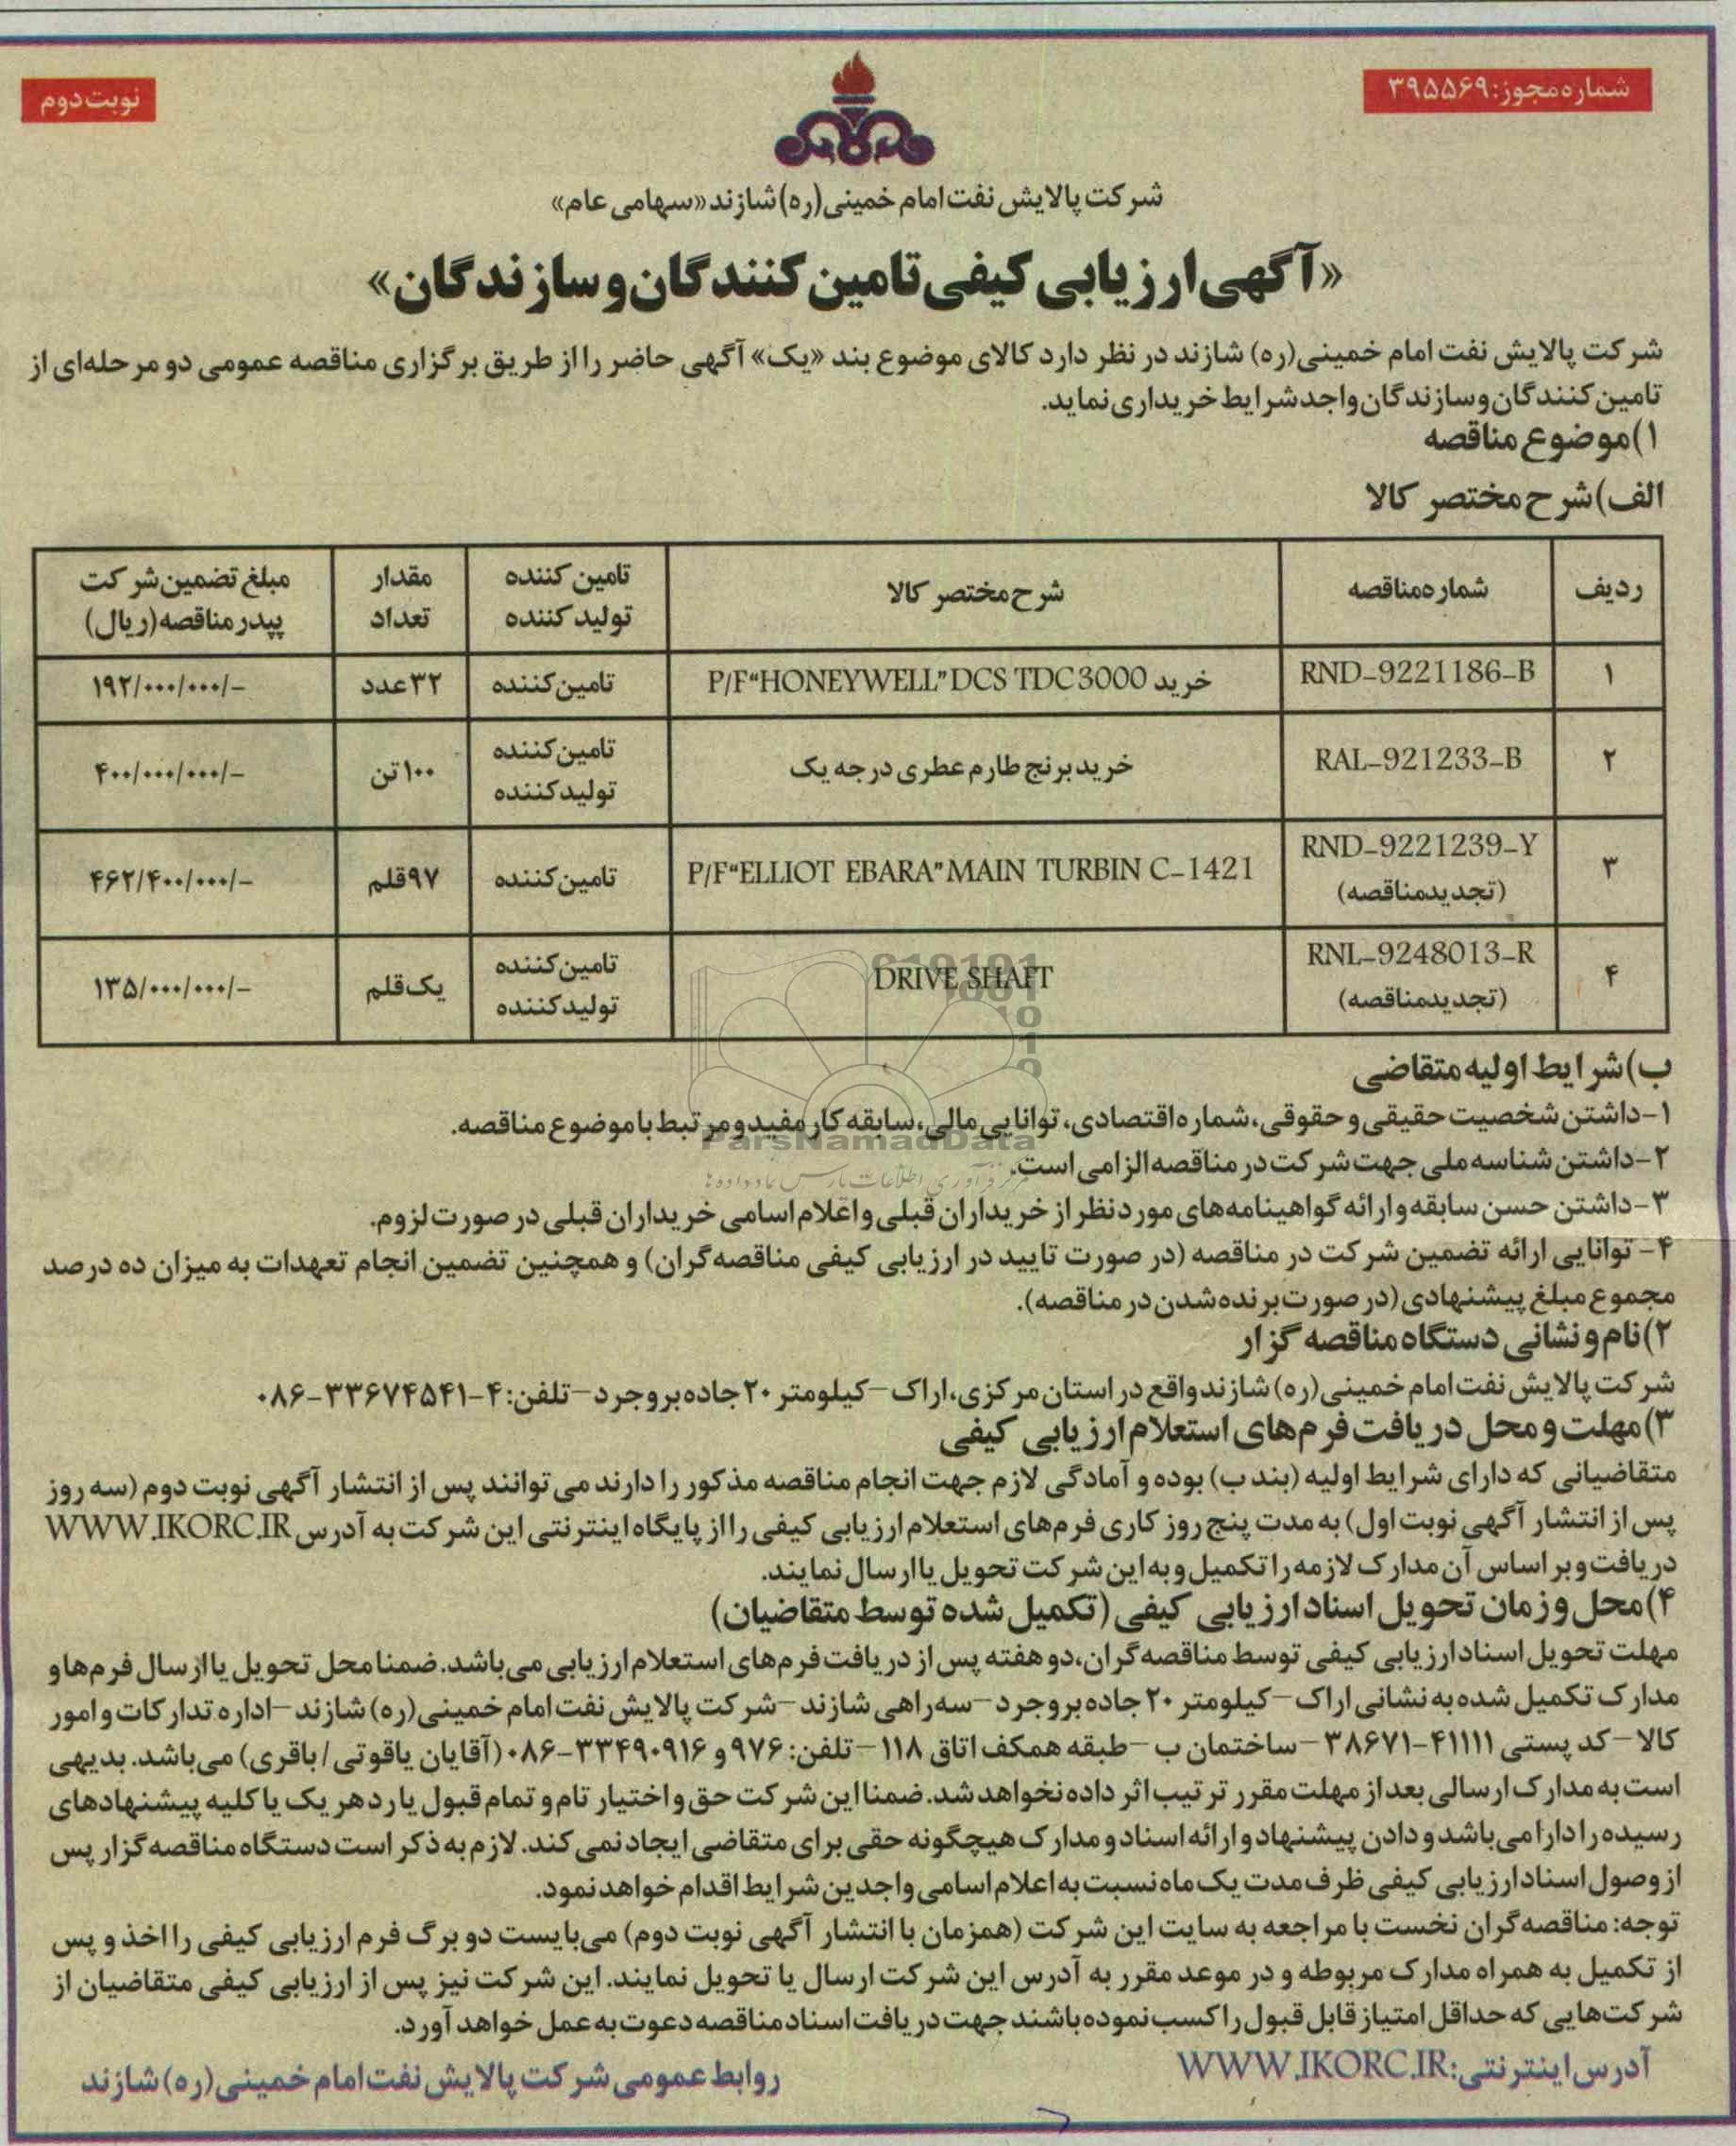 شماره مجوز: ۳۹۵۵۶۹
نوبت دوم
شرکت پالایش نفت امام خمینی(ره) شازند «سهامی عام»
«آگهی ارزیابی کیفی تامین کنندگان و سازندگان»
شرکت پالایش نفت امام خمینی(ره) شازند در نظر دارد کالای موضوع بند «یک» آگهی حاضر را از طریق برگزاری مناقصه عمومی دو مرحله‌ای از
تامین کنندگان و سازندگان واجد شرایط خریداری نماید.
۱) موضوع مناقصه
الف) شرح مختصر کالا
ردیف شماره مناقصه شرح مختصر کالا تامین کننده تولید کننده مقدار تعداد مبلغ تضمین شرکت پیدر مناقصه (ریال)
۱ RND-9221186-B خرید P/F“HONEYWELL” DCS TDC 3000 تامین کننده ۳۲ عدد ۱۹۲/۰۰۰/۰۰۰/-
۲ RAL-921233-B خرید برنج طارم عطری درجه یک تامین کننده تولید کننده ۱۰۰ تن ۴۰۰/۰۰۰/۰۰۰/-
۳ RND-9221239-Y (تجدید مناقصه) P/F“ELLIOT EBARA” MAIN TURBIN C-1421 تامین کننده ۹۷ قلم ۴۶۲/۴۰۰/۰۰۰/-
۴ RNL-9248013-R (تجدید مناقصه) DRIVE SHAFT تامین کننده تولید کننده یک قلم ۱۳۵/۰۰۰/۰۰۰/-
ب) شرایط اولیه متقاضی
۱- داشتن شخصیت حقیقی و حقوقی، شماره اقتصادی، توانایی مالی، سابقه کار مفید و مرتبط با موضوع مناقصه.
ParsNamadData
۲- داشتن شناسه ملی جهت شرکت در مناقصه الزامی است.
مرکز فرآوری اطلاعات پارس نماد داده ها
۳- داشتن حسن سابقه و ارائه گواهینامه‌های مورد نظر از خریداران قبلی و اعلام اسامی خریداران قبلی در صورت لزوم.
۴- توانایی ارائه تضمین شرکت در مناقصه (در صورت تایید در ارزیابی کیفی مناقصه گران) و همچنین تضمین انجام تعهدات به میزان ده درصد
مجموع مبلغ پیشنهادی (در صورت برنده شدن در مناقصه).
۲) نام و نشانی دستگاه مناقصه گزار
شرکت پالایش نفت امام خمینی (ره) شازند واقع در استان مرکزی، اراک - کیلومتر ۲۰ جاده بروجرد - تلفن: ۴-۳۳۶۷۴۵۴۱-۰۸۶
۳) مهلت و محل دریافت فرم‌های استعلام ارزیابی کیفی
متقاضیانی که دارای شرایط اولیه (بند ب) بوده و آمادگی لازم جهت انجام مناقصه مذکور را دارند می توانند پس از انتشار آگهی نوبت دوم (سه روز
پس از انتشار آگهی نوبت اول) به مدت پنج روز کاری فرم‌های استعلام ارزیابی کیفی را از پایگاه اینترنتی این شرکت به آدرس WWW.IKORC.IR
دریافت و بر اساس آن مدارک لازمه را تکمیل و به این شرکت تحویل یا ارسال نمایند.
۴) محل و زمان تحویل اسناد ارزیابی کیفی (تکمیل شده توسط متقاضیان)
مهلت تحویل اسناد ارزیابی کیفی توسط مناقصه گران، دو هفته پس از دریافت فرم‌های استعلام ارزیابی می‌باشد. ضمنا محل تحویل یا ارسال فرم‌ها و
مدارک تکمیل شده به نشانی اراک - کیلومتر ۲۰ جاده بروجرد - سه راهی شازند - شرکت پالایش نفت امام خمینی (ره) شازند - اداره تدارکات و امور
کالا - کد پستی ۴۱۱۱۱-۳۸۶۷۱ - ساختمان ب - طبقه همکف اتاق ۱۱۸ - تلفن: ۹۷۶ و ۳۳۴۹۰۹۱۶-۰۸۶ (آقایان یاقوتی / باقری) می‌باشد. بدیهی
است به مدارک ارسالی بعد از مهلت مقرر ترتیب اثر داده نخواهد شد. ضمنا این شرکت حق و اختیار تام و تمام قبول یا رد هر یک یا کلیه پیشنهادهای
رسیده را دارا می‌باشد و دادن پیشنهاد و ارائه اسناد و مدارک هیچگونه حقی برای متقاضی ایجاد نمی کند. لازم به ذکر است دستگاه مناقصه گزار پس
از وصول اسناد ارزیابی کیفی ظرف مدت یک ماه نسبت به اعلام اسامی واجدین شرایط اقدام خواهد نمود.
توجه: مناقصه گران نخست با مراجعه به سایت این شرکت (همزمان با انتشار آگهی نوبت دوم) می‌بایست دو برگ فرم ارزیابی کیفی را اخذ و پس
از تکمیل به همراه مدارک مربوطه و در موعد مقرر به آدرس این شرکت ارسال یا تحویل نمایند. این شرکت نیز پس از ارزیابی کیفی متقاضیان از
شرکت‌هایی که حداقل امتیاز قابل قبول را کسب نموده باشند جهت دریافت اسناد مناقصه دعوت به عمل خواهد آورد.
آدرس اینترنتی: WWW.IKORC.IR
روابط عمومی شرکت پالایش نفت امام خمینی (ره) شازند